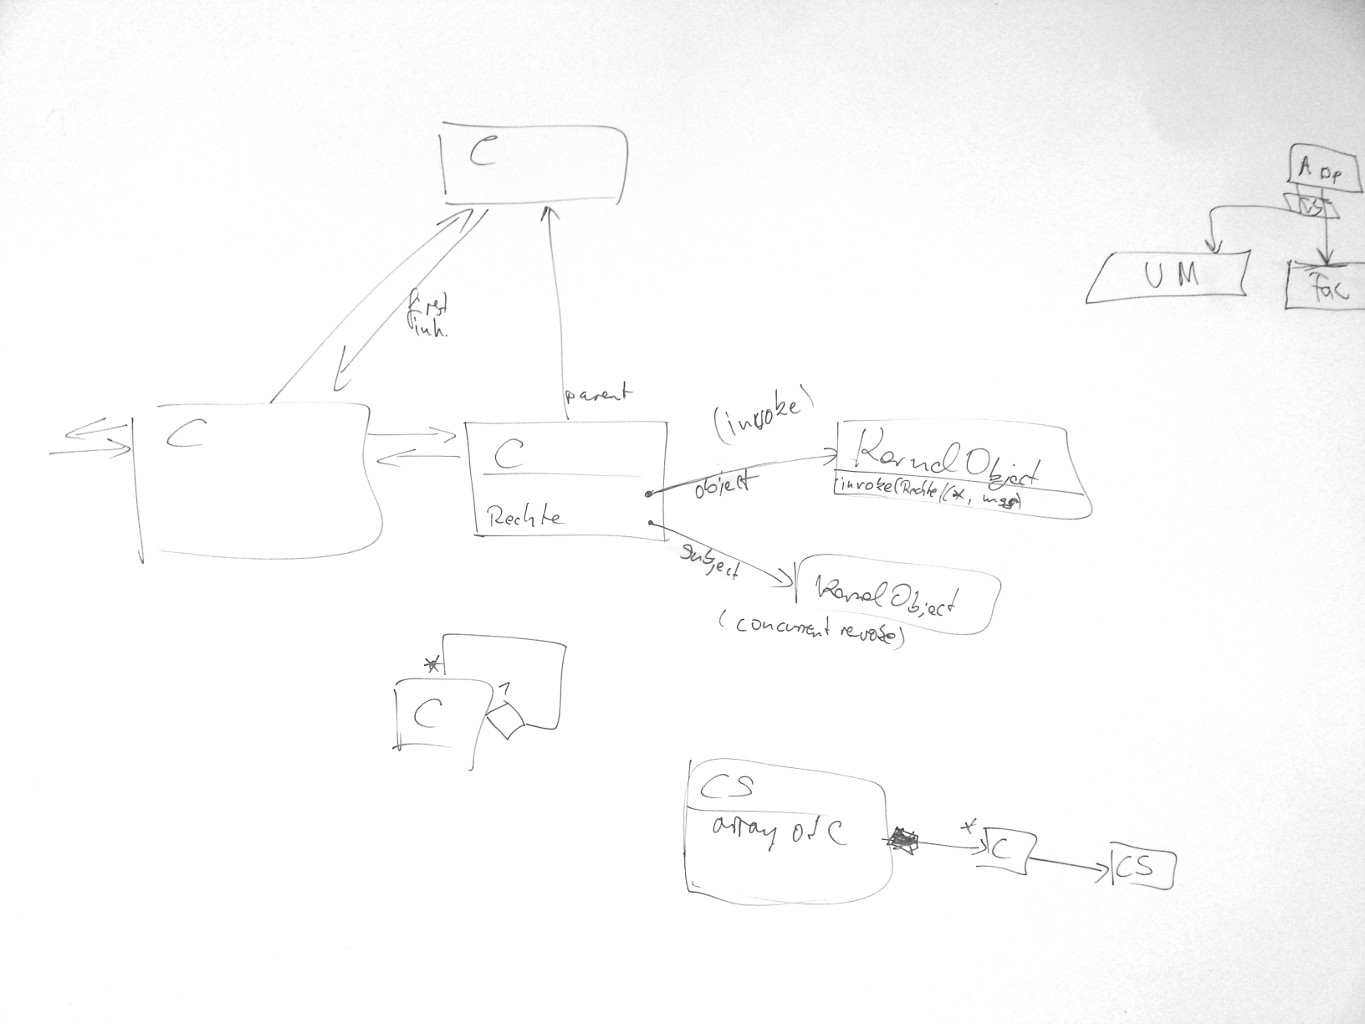 C
App
UM
Fac
first
inh.
parent
(invoke)
C
C
Rechte
object
KernelObject
subject
KernelObject
(concurrent revoke)
*
C
1
CS
array of C
*
C
CS